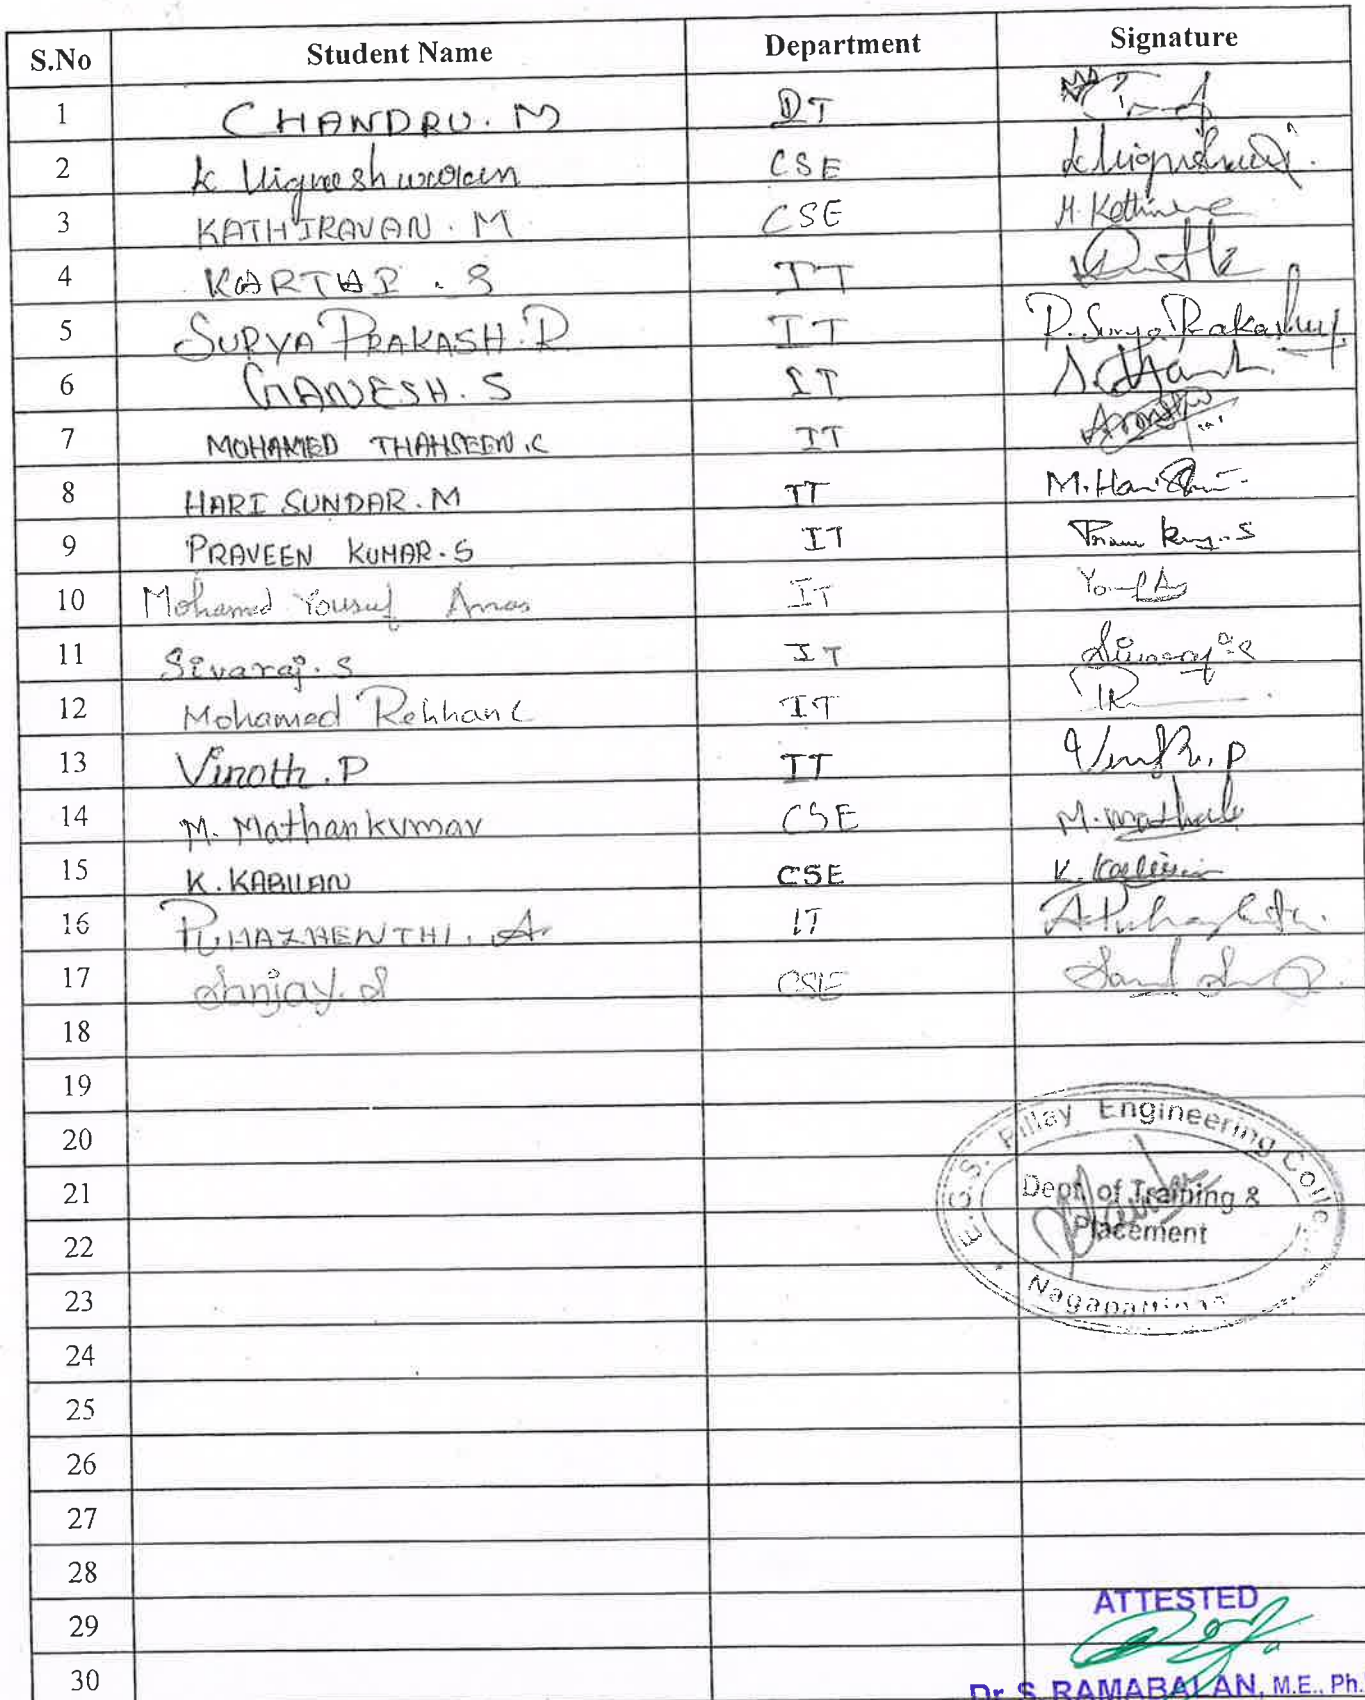 S.No Student Name Department Signature
1 CHANDRU. M IT
2 K Vigneshwaran CSE
3 KATHIRAVAN. M CSE M. Kathirave
4 IT
5 SURYA PRAKASH. R IT R. Surya Prakash
6 GANESH. S IT
7 MOHAMED THAHSEEN. C IT
8 HARI SUNDAR. M IT M. Hari
9 PRAVEEN KUMAR. S IT
10 Mohamed Yousuf Anas IT
11 Sivaraj. S IT Sivaraj. S
12 Mohamed Rehhan C IT
13 Vinoth. P IT Vinoth. P
14 M. Mathankumar CSE
15 K. KABILAN CSE K. Kabilan
16 PUHAZHENTHI. A IT
17 Sanjay. S CSE
18
19
20
21
22
23
24
25
26
27
28
29
30
E.G.S. Pillay Engineering Colle
Dept. of Training &
Placement
ATTESTED
Dr. S. RAMABALAN, M.E., Ph.